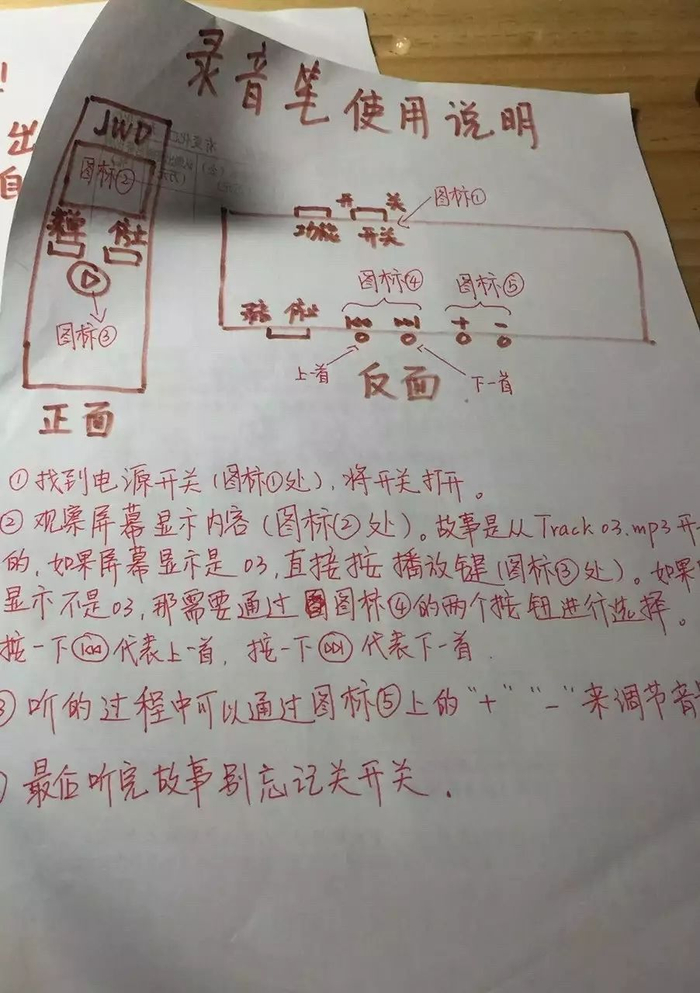 录音笔使用说明
JWD
图标②
菜单 停止
图标③
正面
开 关
图标①
功能 开关
图标④ 图标⑤
录音 停止 + -
上一首 下一首
反面
出
自
①找到电源开关(图标①处),将开关打开。
② 观察屏幕显示内容(图标②处)。故事是从Track 03.mp3开
的,如果屏幕显示是03,直接按播放键(图标③处)。如果
显示不是03,那需要通过图标④的两个按钮进行选择。
按一下代表上一首,按一下代表下一首.
③ 听的过程中可以通过图标⑤上的“+”“-”来调节音
最后听完故事别忘记关开关.